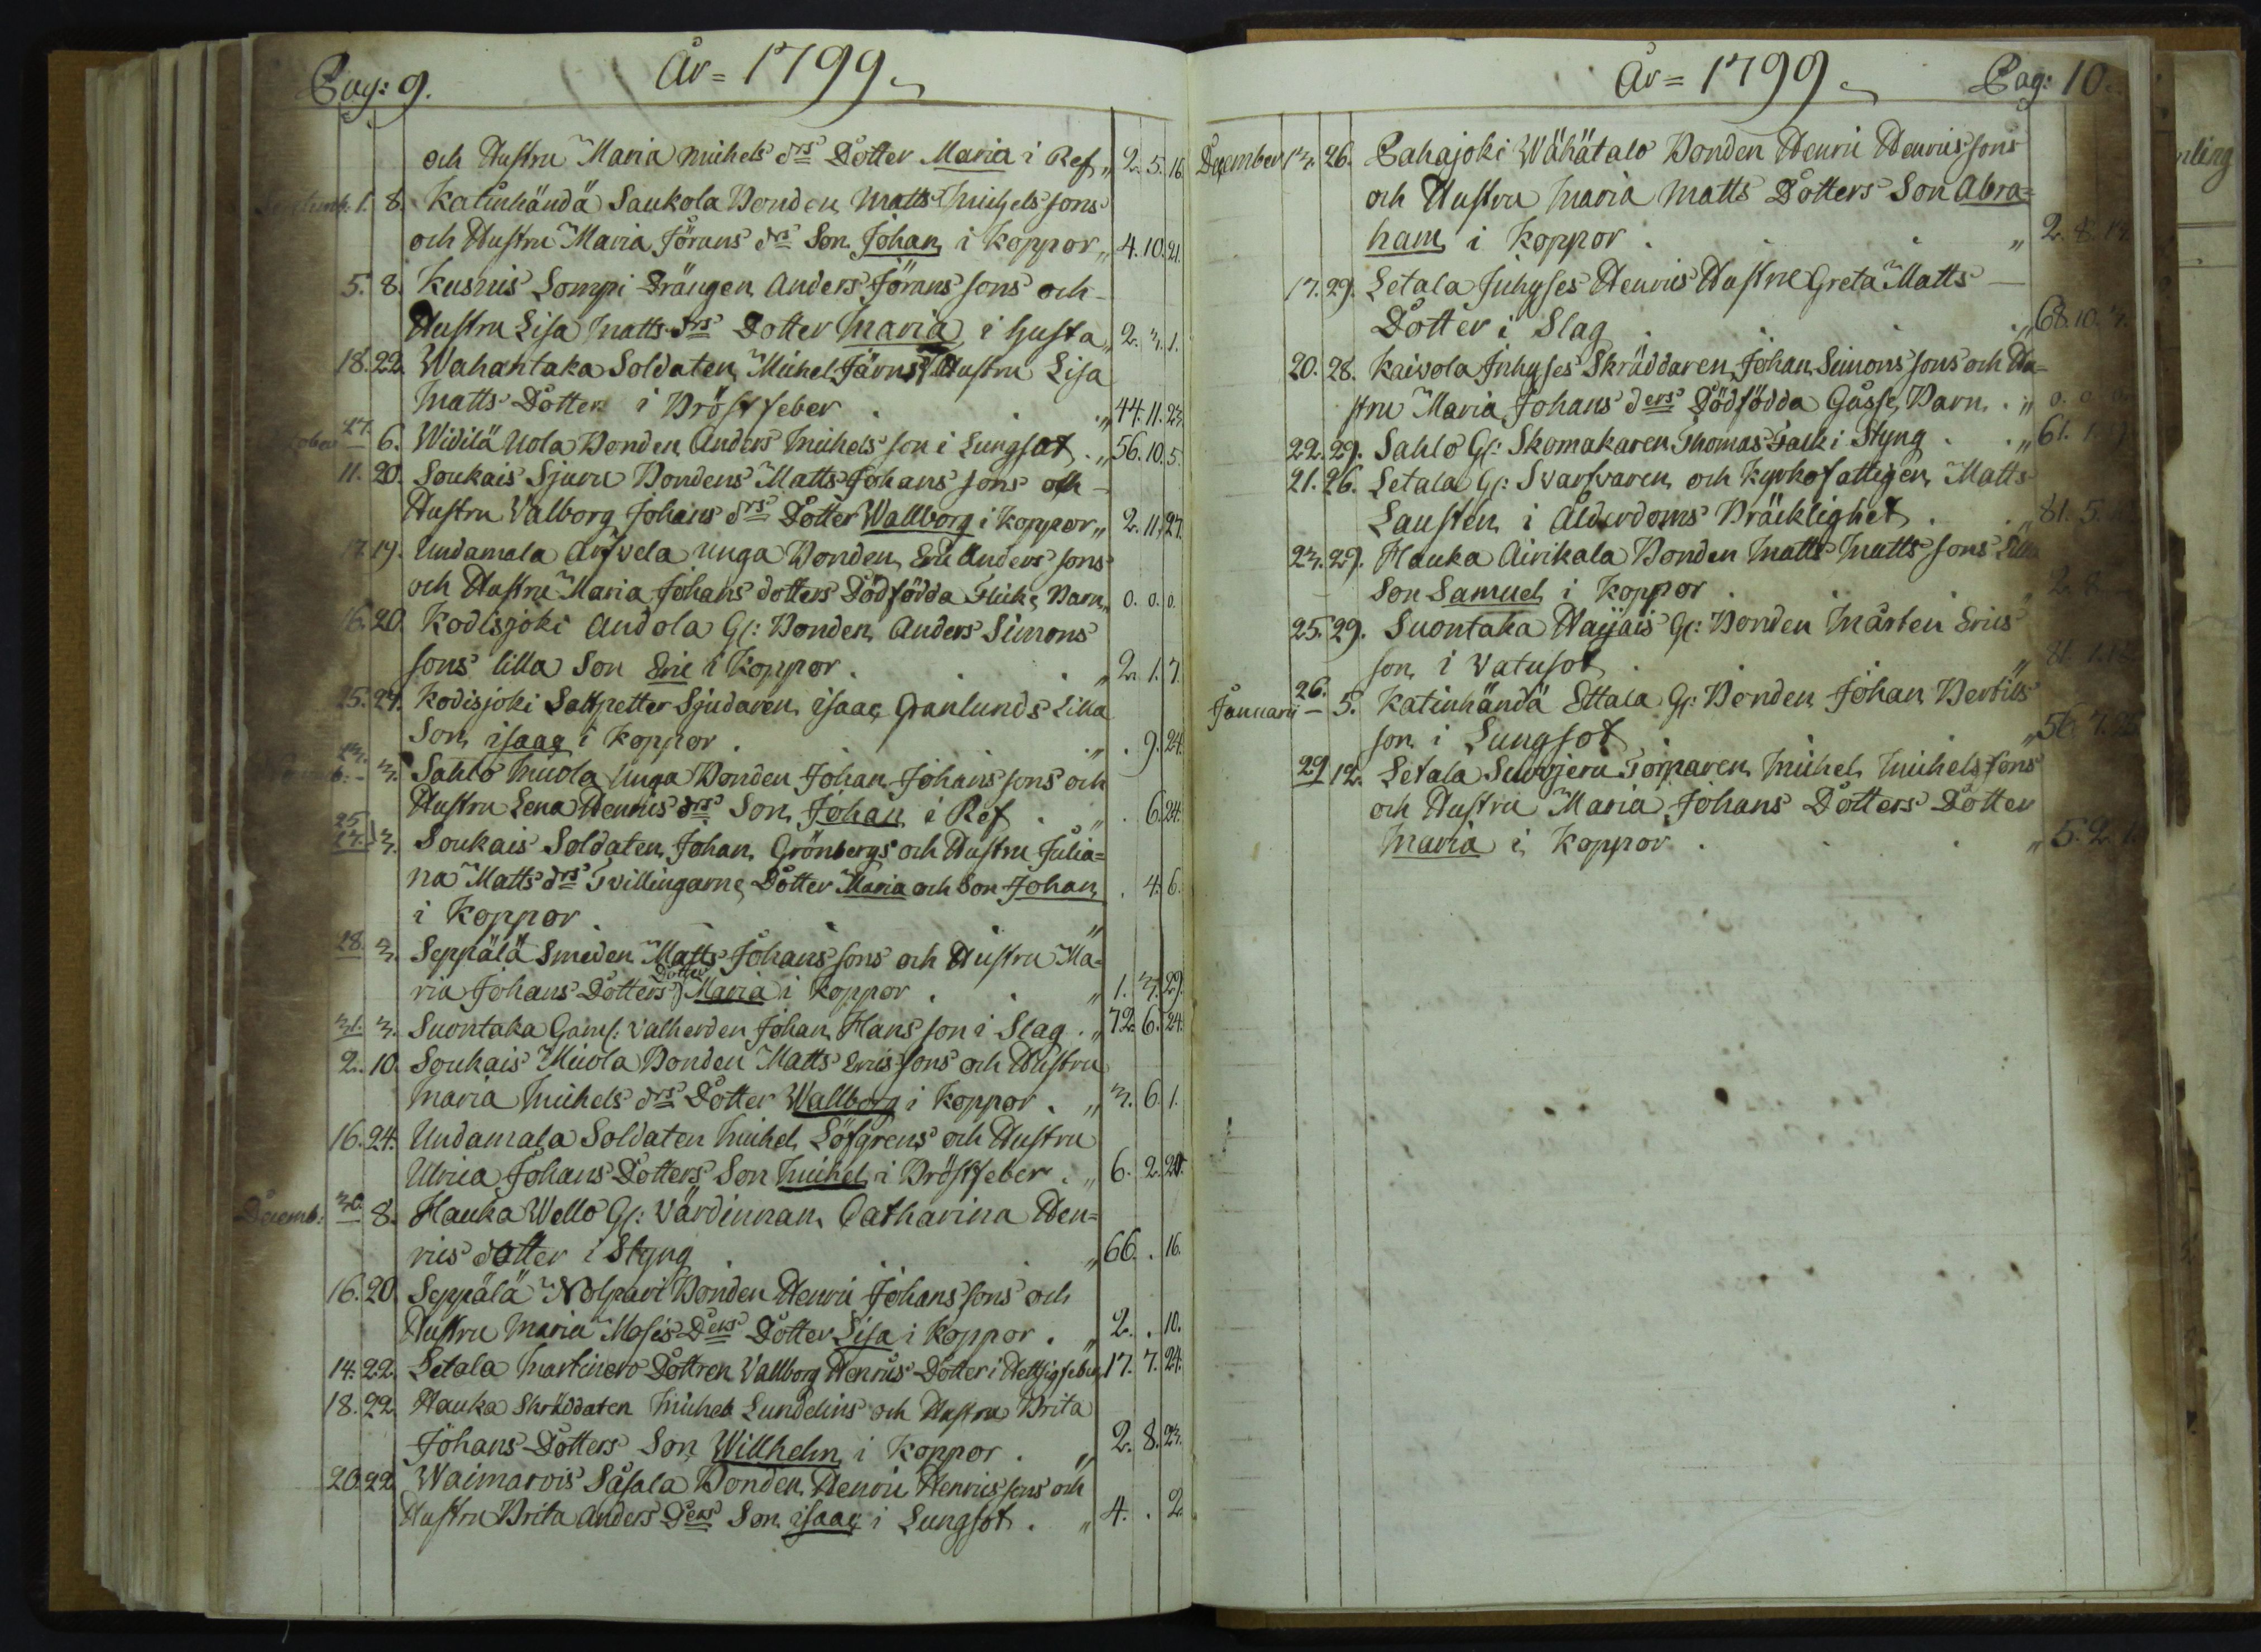 Pag: 9.
År = 1799.
och Hustru Maria Michels drs Dotter Maria i Ref „ 2. 5. 16.
1. 8. Katinhändä Saukola Bonden Matts Michels sons
och Hustru Maria Jörans drs Son Johan i Koppor „ 4. 10. 21.
5. 8. Kusnis Lompi Drängen Anders Jörans sons och
Hustru Lisa Matts drs Dotter Maria i husta „ 2. 3. 1.
18. 22. Wahantaka Soldaten Michel Järns Hustru Lisa
Matts Dotter i Bröstfeber „ 44. 11. 23.
27. 6. Widilä Uola Bonden Anders Michels son i Lungsot „ 56. 10. 5.
11. 20. Soukais Sjuru Bondens Matts Johans sons och
Hustru Valborg Johans drs Dotter Wallborg i Koppor „ 2. 11. 27.
17. 19. Undamala Arfvela unga Bonden Eric Anders sons
och Hustru Maria Johans dotters Dödfödda Flicke Barn „ 0. 0. 0.
16. 20. Kodisjoki Andola Gl: Bonden Anders Simons
sons lilla Son Eric i Koppor „ 2. 1. 7.
25. 27. Kodisjoki Saltpetter Sjudaren Isaac Granlunds Lilla
Son Isaac i Koppor „ . 9. 24.
23. 3. Sahlo Micola Unga Bonden Johan Johans sons och
Hustru Lena Henrics drs Son Johan i Ref „ . 6. 24.
25.
27. 3. Soukais Soldaten Johan Grönbergs och Hustru Julia=
na Matts drs Tvillingarne Dotter Maria och Son Johan . 4. 6.
i Koppor „
28. 3. Seppälä Smeden Matts Johans sons och Hustru Ma=
ria Johans Dotters Dotter Maria i Koppor „ 1. 3. 29.
31. 3. Suontaka Gaml: valherden Johan Hans son i Slag „ 72. 6. 24.
2. 10. Soukais Micola Bonden Matts Erics sons och Hustru
Maria Michels drs Dotter Wallborg i Koppor „ 3. 6. 1.
16. 24. Undamala Soldaten Michel Löfgrens och Hustru
Ulrica Johans Dotters Son Michel i Bröstfeber „ 6. 2. 20.
Decemb: 30. 8. Hauka Wello Gl: Värdinnan Catharina Hen=
rics dotter i Styng „ 66. . 16.
16. 20. Seppälä Nolpari Bonden Henric Johans sons och
Hustru Maria Moses Ders Dotter Lisa i Koppor „ 2. . 10.
14. 22. Letala Martinero Dottren Vallborg Henrics Dotter i Hettsigfeber 17. 7. 24.
18. 22. Hauka Skräddaren Michel Lundelins och Hustru Brita
Johans Dotters Son Willhelm i Koppor „ 2. 8. 23.
20. 22. Waimarois Såsala Bonden Henric Henrics sons och
Hustru Brita Anders Ders Son Isaac i Lungsot „ 4. . 2.
År = 1799.
Pag: 10.
December 13. 26. Pahajoki Wähätalo Bonden Henric Henrics sons
och Hustru Maria Matts Dotters Son Abra=
ham i Koppor „ 2. 8. 19.
17. 29. Letala Inhyses Henrics Hustru Greta Matts
Dotter i Slag „ 68. 10. 3.
20. 28. Kaivola Inhyses Skräddaren Johan Simons sons och Hu=
stru Maria Johans ders Dödfödda Gåsse Barn „ 0. 0.
22. 29. Sahlo Gl: Skomakaren Thomas Falk i Styng „ 61. 1.
21. 26. Letala Gl: Svarfvaren och Kyrkofattigen Matts
Lausten i Ålderdoms Bräcklighet „ 81. 5.
23. 29. Hauka Airikala Bonden Matts Matts sons Lilla
Son Samuel i Koppor „ 2. 8
25. 29. Suontaka Haijais Gl: Bonden Mårten Erics
son i Vatusot „
26.
Januarii 5. Katinhändä Ettala Gl: Bonden Johan Bertils
son i Lungsot „ 56. 7. 25
29. 12. Letala Suorsjeru Torparen Michel Michels sons
och Hustru Maria Johans Dotters Dotter
Maria i Koppor „ 5. 2. 1.